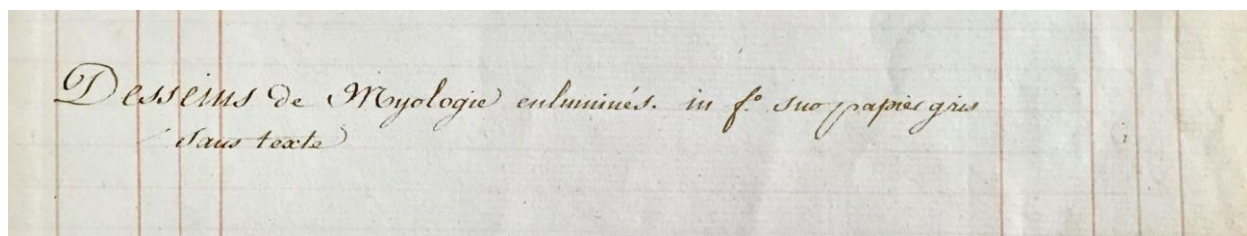 Desseins de Myologie enluminés. in f.o sur papier gris
sans texte